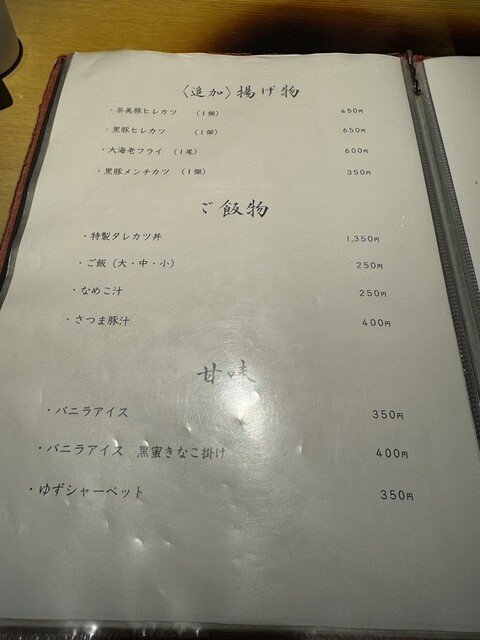 〈追加〉揚げ物
・茶美豚ヒレカツ （1個） 450円
・黒豚ヒレカツ （1個） 650円
・大海老フライ （1尾） 600円
・黒豚メンチカツ （1個） 350円
ご飯物
・特製タレカツ丼 1,350円
・ご飯（大・中・小） 250円
・なめこ汁 250円
・さつま豚汁 400円
甘味
・バニラアイス 350円
・バニラアイス 黒蜜きなこ掛け 400円
・ゆずシャーベット 350円